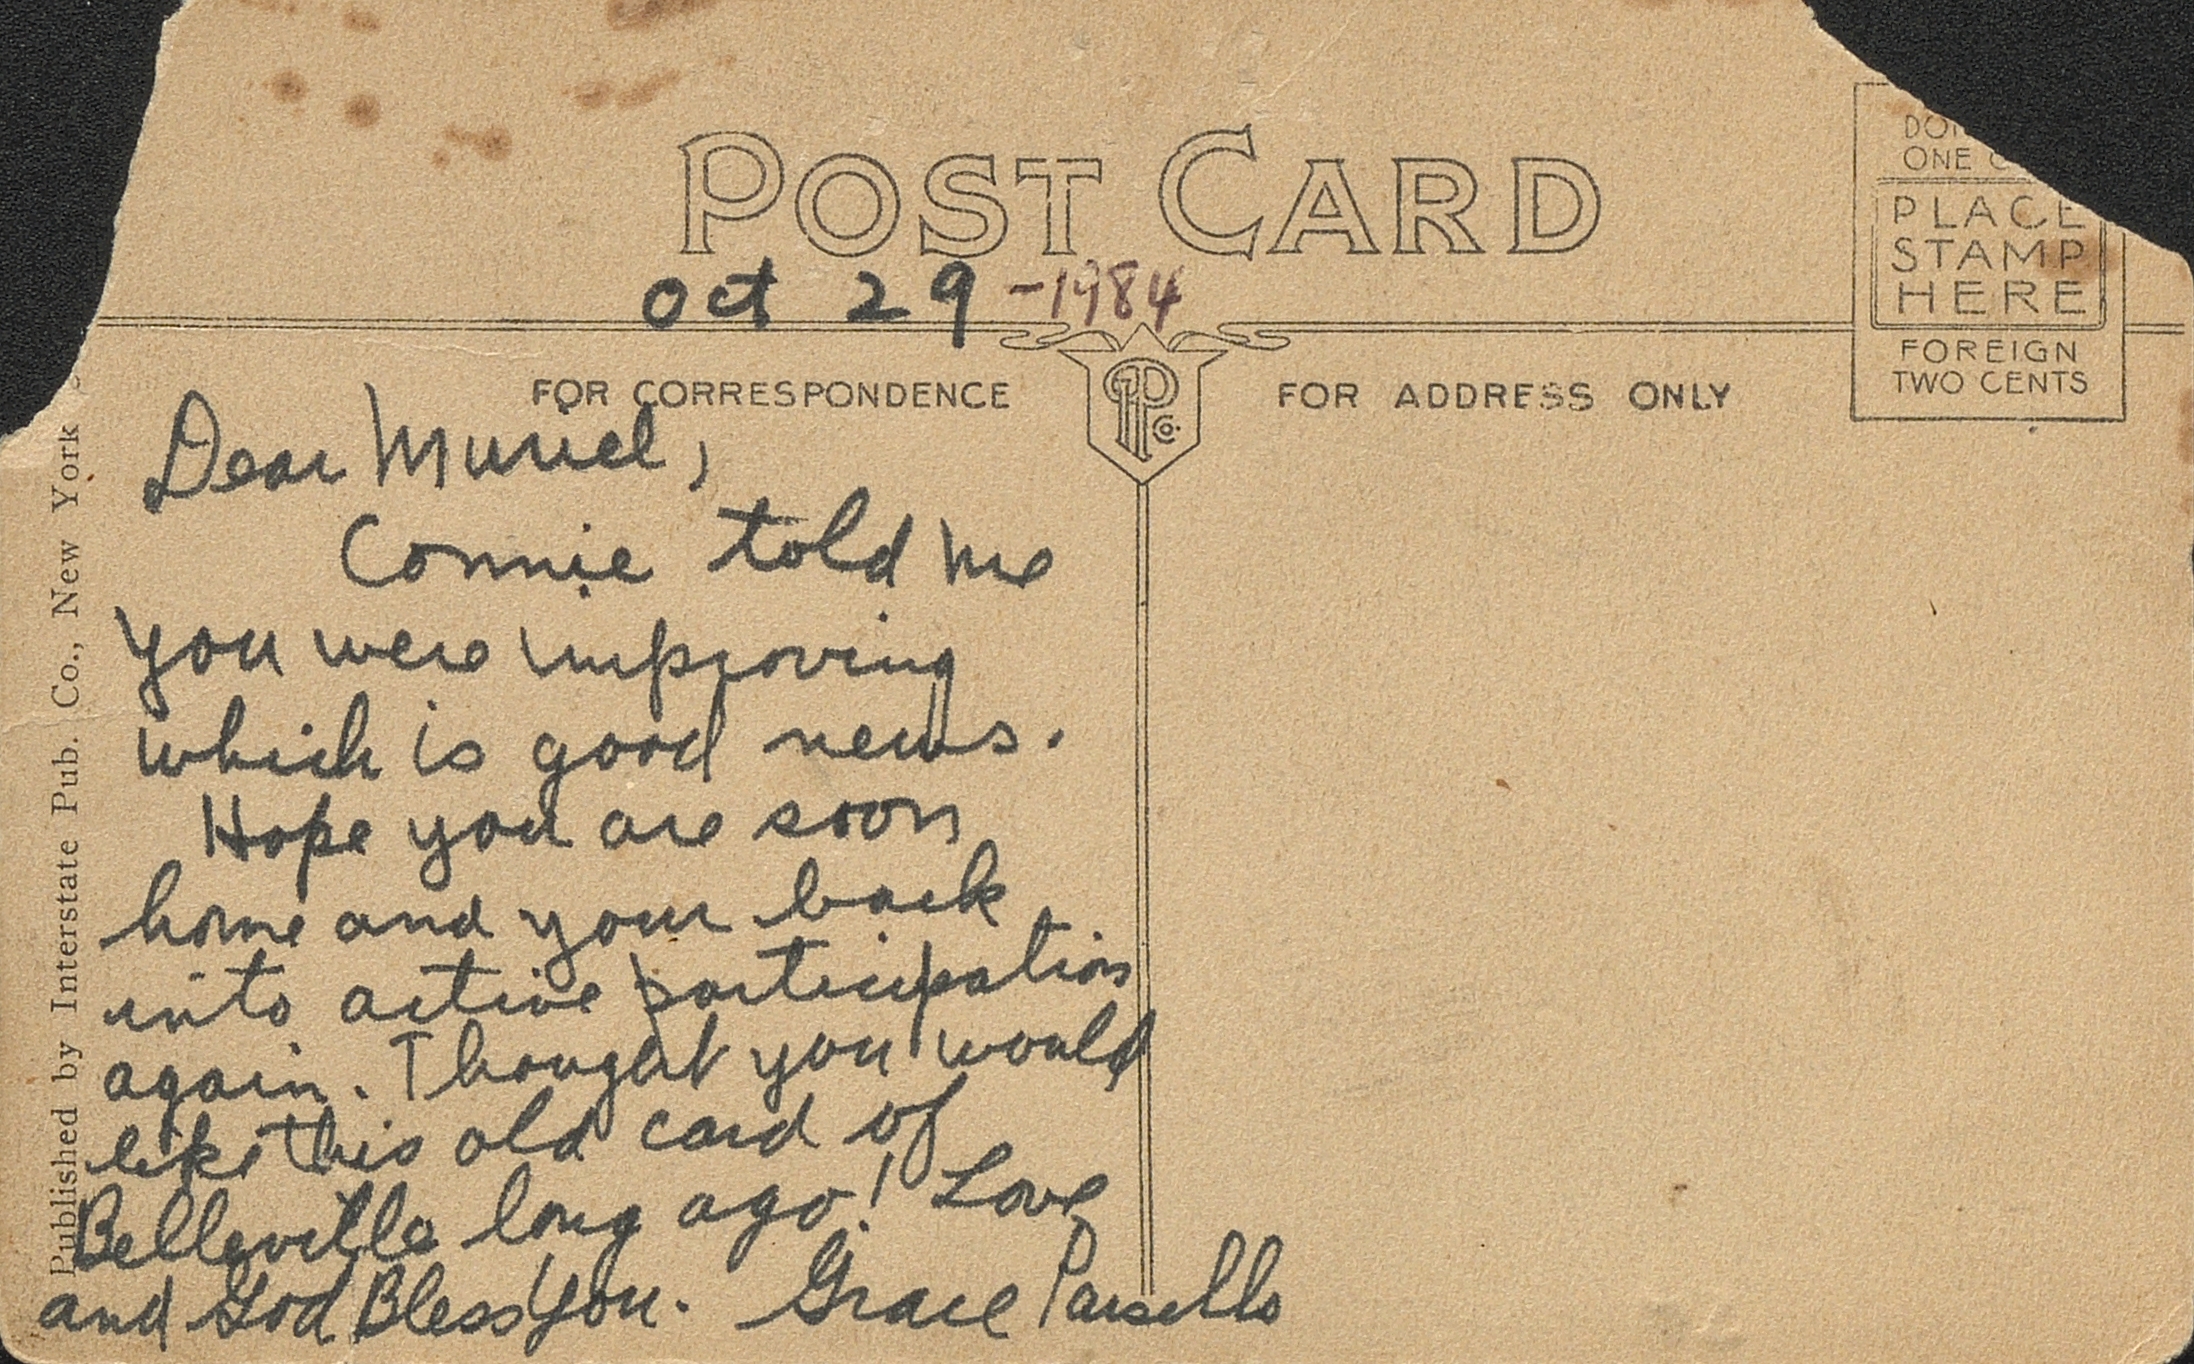 POST CARD
Oct 29 -1984
FOR CORRESPONDENCE
FOR ADDRESS ONLY
ONE
PLACE
STAMP
HERE
FOREIGN
TWO CENTS
PCo.
Dear Muriel,
Connie told me
you were improving
which is good news.
Hope you are soon
home and your back
into active participation
again. Thought you would
like this old card of
Belleville long ago! Love
and God Bless You. Grace Parsello
Published by Interstate Pub. Co., New York